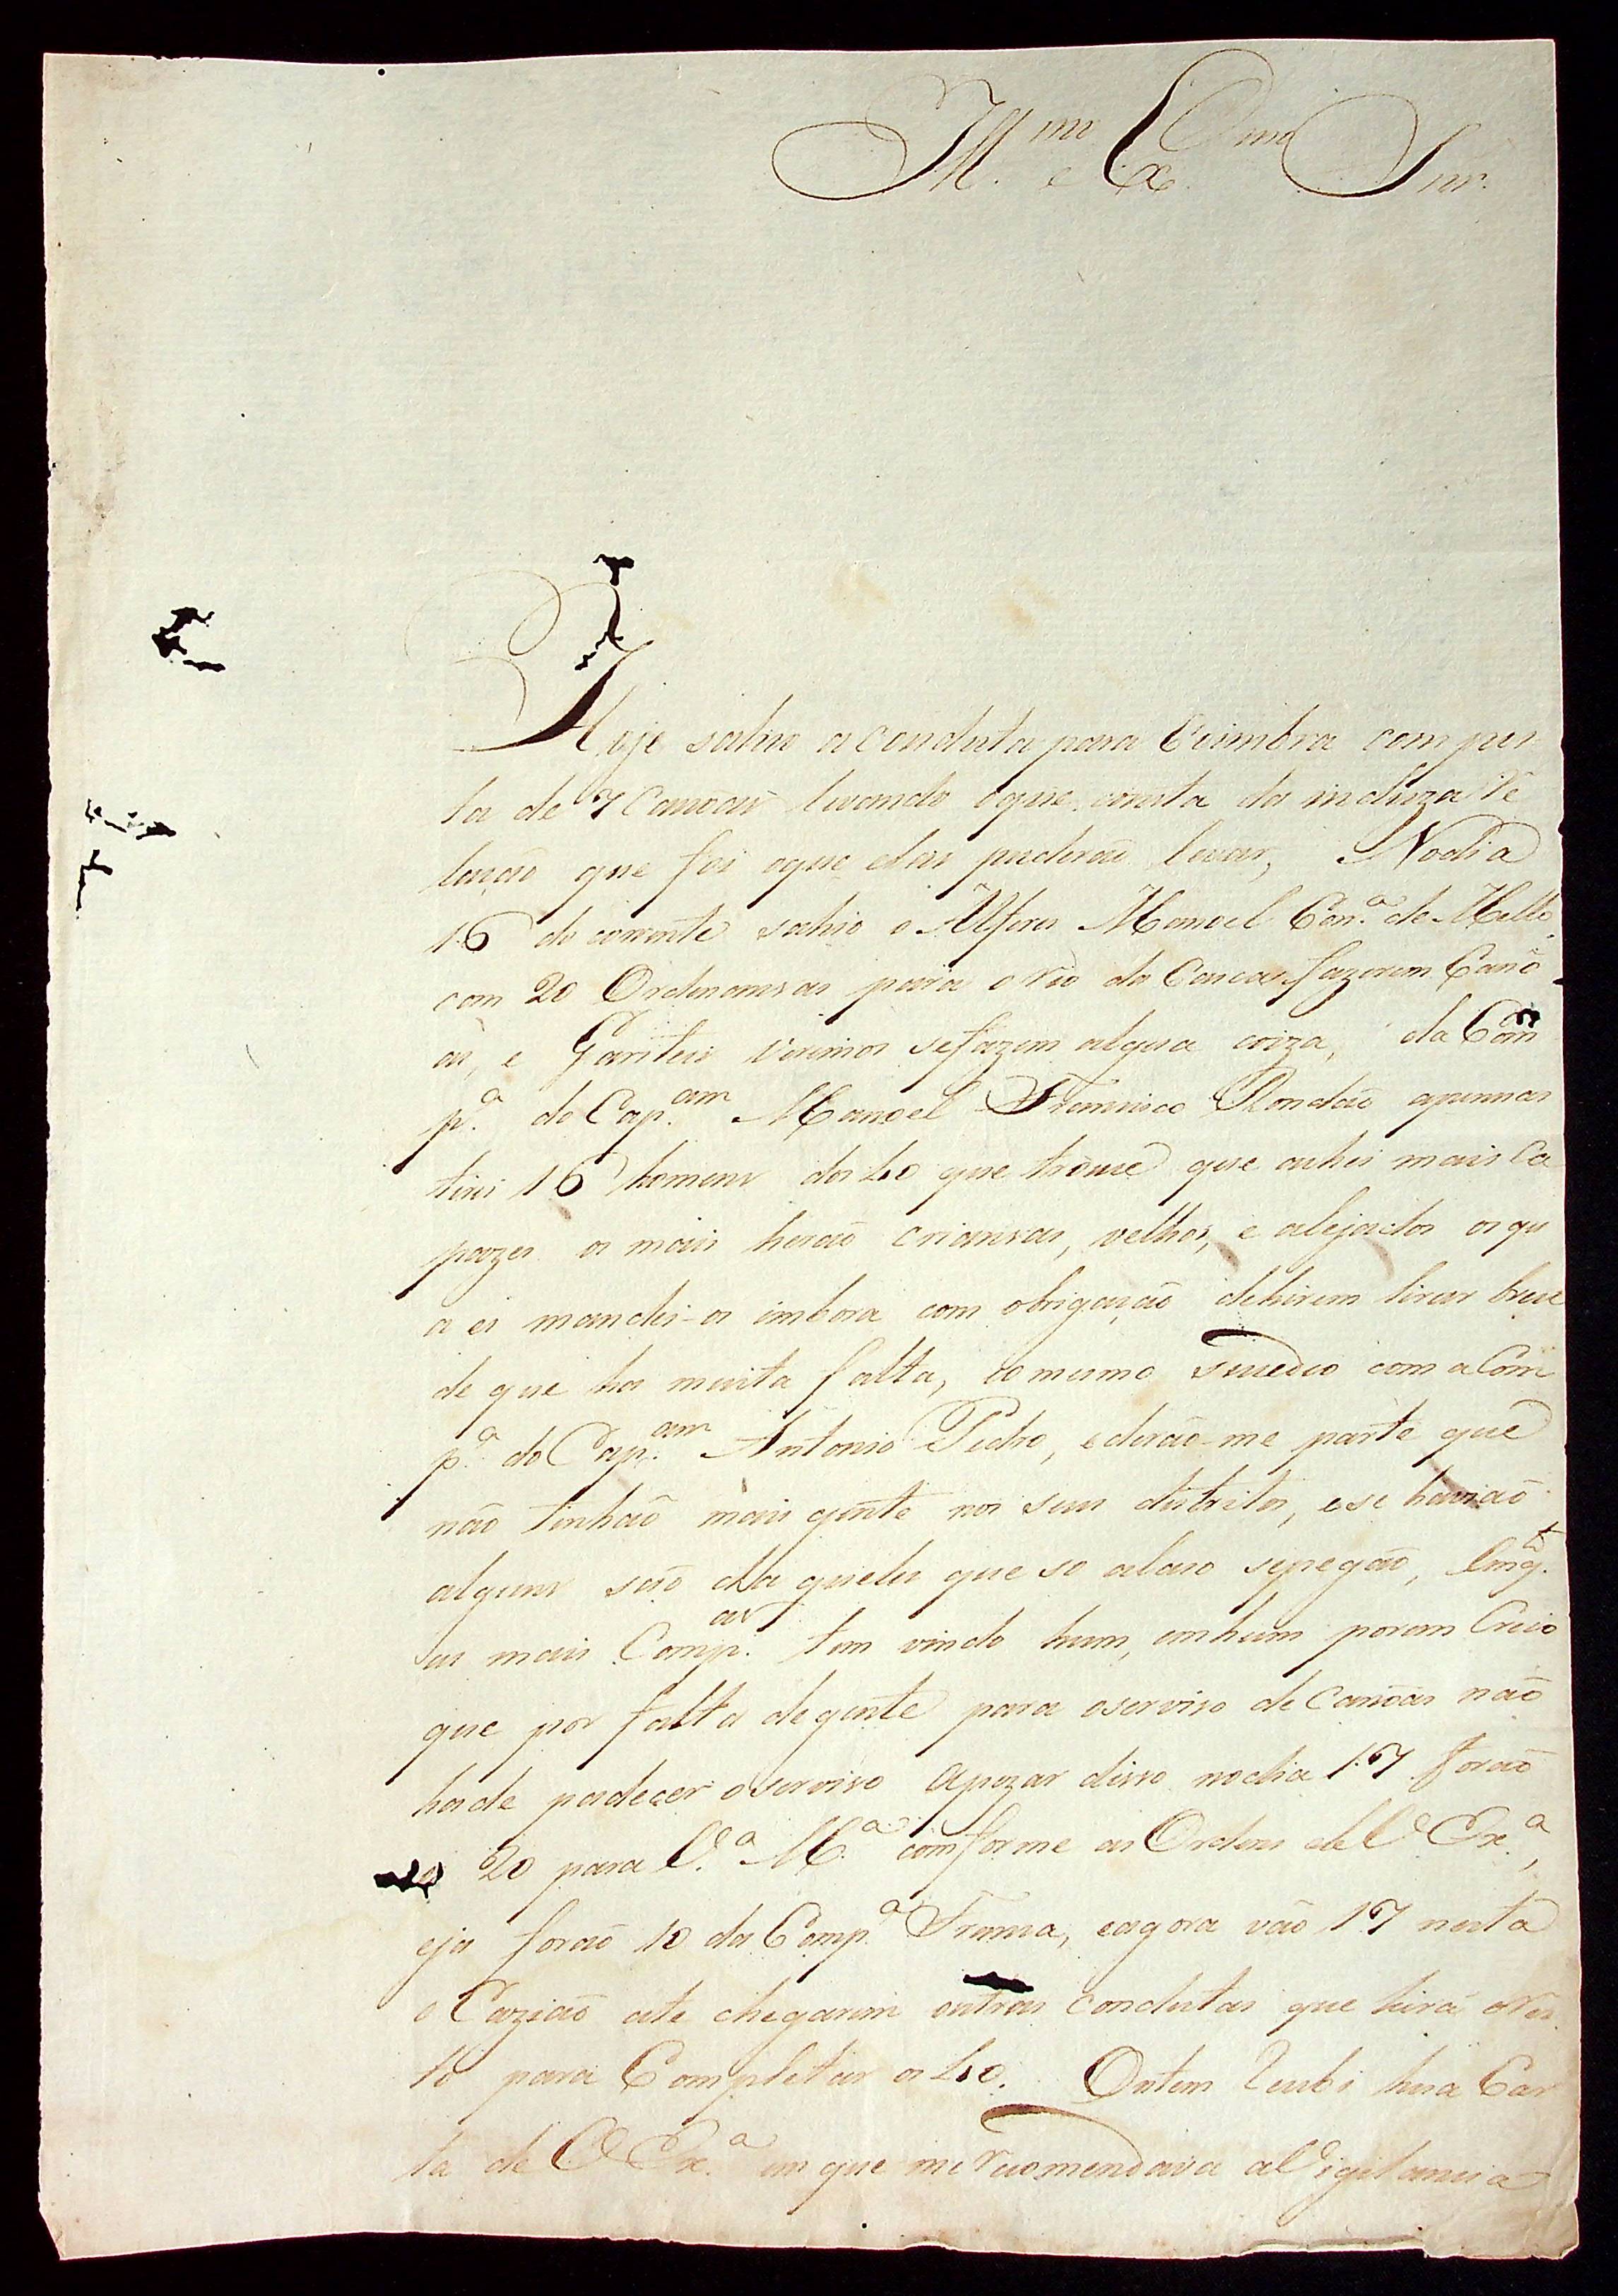 Ill.mo e Ex.mo Snr.
Hoje sahio a conduta para Coimbra comпos
ta de 7 Canoas levando oque consta da incluza Re
lação que foi oque elas puderão levar, Nodia
16 do corrente sahio o Alferes Manoel Corr.ª de Mello
com 20 Ordenansas para o rio da Cascas fazerem Cano
as, e Gariteis veremos sefazem algua coiza, da Com
p.ª do Cap.am Manoel Francisco Rondão apennas
tirei 16 homens dos 40 que trouxe que achei mais Ca
pazes os mais herão criansas, velhos, e alejados os qu
a es mandei-os imbora com obrigação dehirem tirar breu
de que ha muita falta, eo mesmo sucedeo com a Com
p.ª do Cap.am Antonio Pedro, ederão-me parte que
não tinhão mais gente nos seus distritos, ese havião
alguns são da queles que so alaso sepegão, Emq.to
as mais Comp.as tem vindo hum, emhum porem Creio
que por falta degente para oserviso de canoas não
hade padecer oserviso apezar disso nodia 17 forão
os 20 para V.ª M.ª comforme as Ordens de V Ex.ª,
eja forão 10 da Comp.ª Franca, eagora vão 17 nesta
o Cazião ate chegarem outras condutas que hirá o Res
to para Completar os 40. Ontem Recebi hua Car
ta de V Ex.ª em que me recomendava a Vigilancia